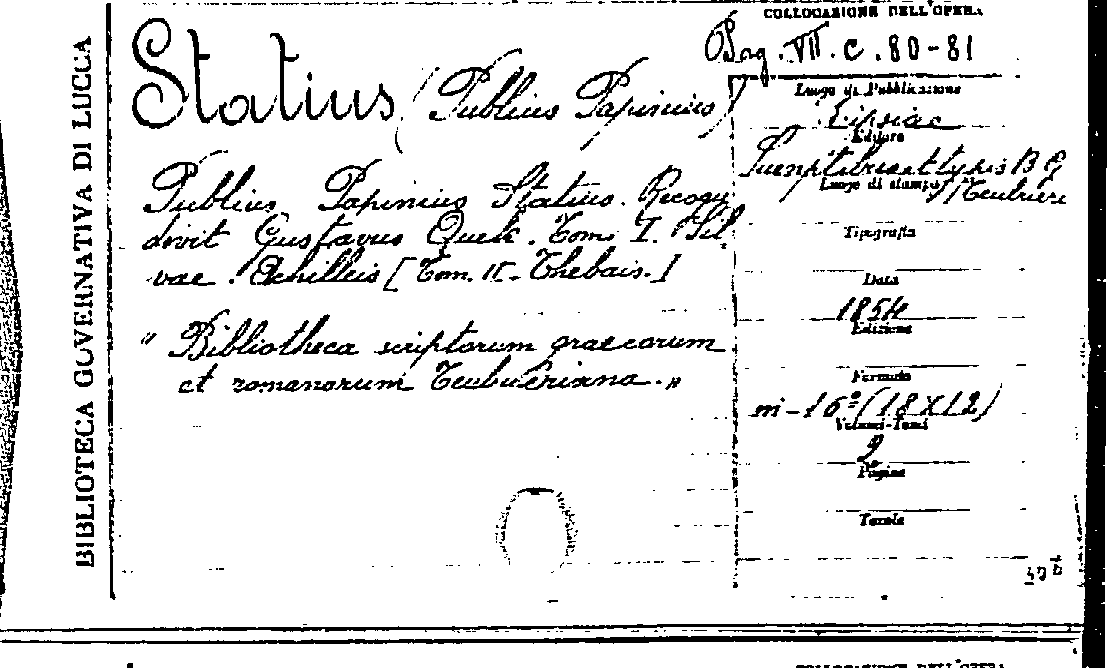 BIBLIOTECA GOVERNATIVA DI LUCCA
Statius (Publius Papinius)
Publius Papinius Statius. Recogn
Gustavus Queck. Tom. I. Sil
vae. Achilleis [Tom. II - Thebais.]
" Bibliotheca scriptorum graecorum
et romanorum Teubneriana. "
COLLOCAZIONE DELL'OPERA
Pag. VII. c. 80-81
Luogo di Pubblicazione
Lipsiae
Editore
Sumptibus et typis B G
Teubneri
Luogo di stampa
Tipografia
Data
1854
Edizione
Formato
in-16º (18X12)
Volumi-Tomi
2
Pagine
Tavole
COLLOCAZIONE DELL'OPERA